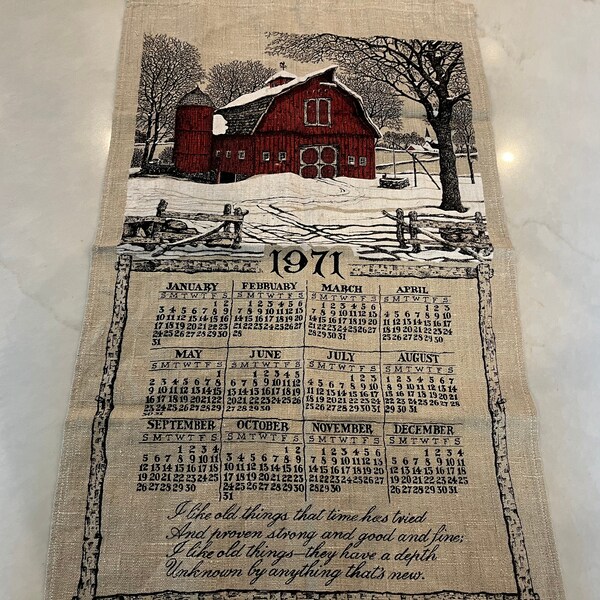 1971
JANUARY FEBRUARY MARCH APRIL
S M T W T F S S M T W T F S S M T W T F S S M T W T F S
1 2 1 2 3 4 5 6 1 2 3 4 5 6 1 2 3
3 4 5 6 7 8 9 7 8 9 10 11 12 13 7 8 9 10 11 12 13 4 5 6 7 8 9 10
10 11 12 13 14 15 16 14 15 16 17 18 19 20 14 15 16 17 18 19 20 11 12 13 14 15 16 17
17 18 19 20 21 22 23 21 22 23 24 25 26 27 21 22 23 24 25 26 27 18 19 20 21 22 23 24
24 25 26 27 28 29 30 28 28 29 30 31 25 26 27 28 29 30
31
MAY JUNE JULY AUGUST
S M T W T F S S M T W T F S S M T W T F S S M T W T F S
1 1 2 3 4 5 1 2 3 1 2 3 4 5 6 7
2 3 4 5 6 7 8 6 7 8 9 10 11 12 4 5 6 7 8 9 10 8 9 10 11 12 13 14
9 10 11 12 13 14 15 13 14 15 16 17 18 19 11 12 13 14 15 16 17 15 16 17 18 19 20 21
16 17 18 19 20 21 22 20 21 22 23 24 25 26 18 19 20 21 22 23 24 22 23 24 25 26 27 28
23 24 25 26 27 28 29 27 28 29 30 25 26 27 28 29 30 31 29 30 31
30 31
SEPTEMBER OCTOBER NOVEMBER DECEMBER
S M T W T F S S M T W T F S S M T W T F S S M T W T F S
1 2 3 4 1 2 1 2 3 4 5 6 1 2 3 4
5 6 7 8 9 10 11 3 4 5 6 7 8 9 7 8 9 10 11 12 13 5 6 7 8 9 10 11
12 13 14 15 16 17 18 10 11 12 13 14 15 16 14 15 16 17 18 19 20 12 13 14 15 16 17 18
19 20 21 22 23 24 25 17 18 19 20 21 22 23 21 22 23 24 25 26 27 19 20 21 22 23 24 25
26 27 28 29 30 24 25 26 27 28 29 30 28 29 30 26 27 28 29 30 31
31
I like old things that time has tried
And proven strong and good and fine;
I like old things—they have a depth
Unknown by anything that's new.